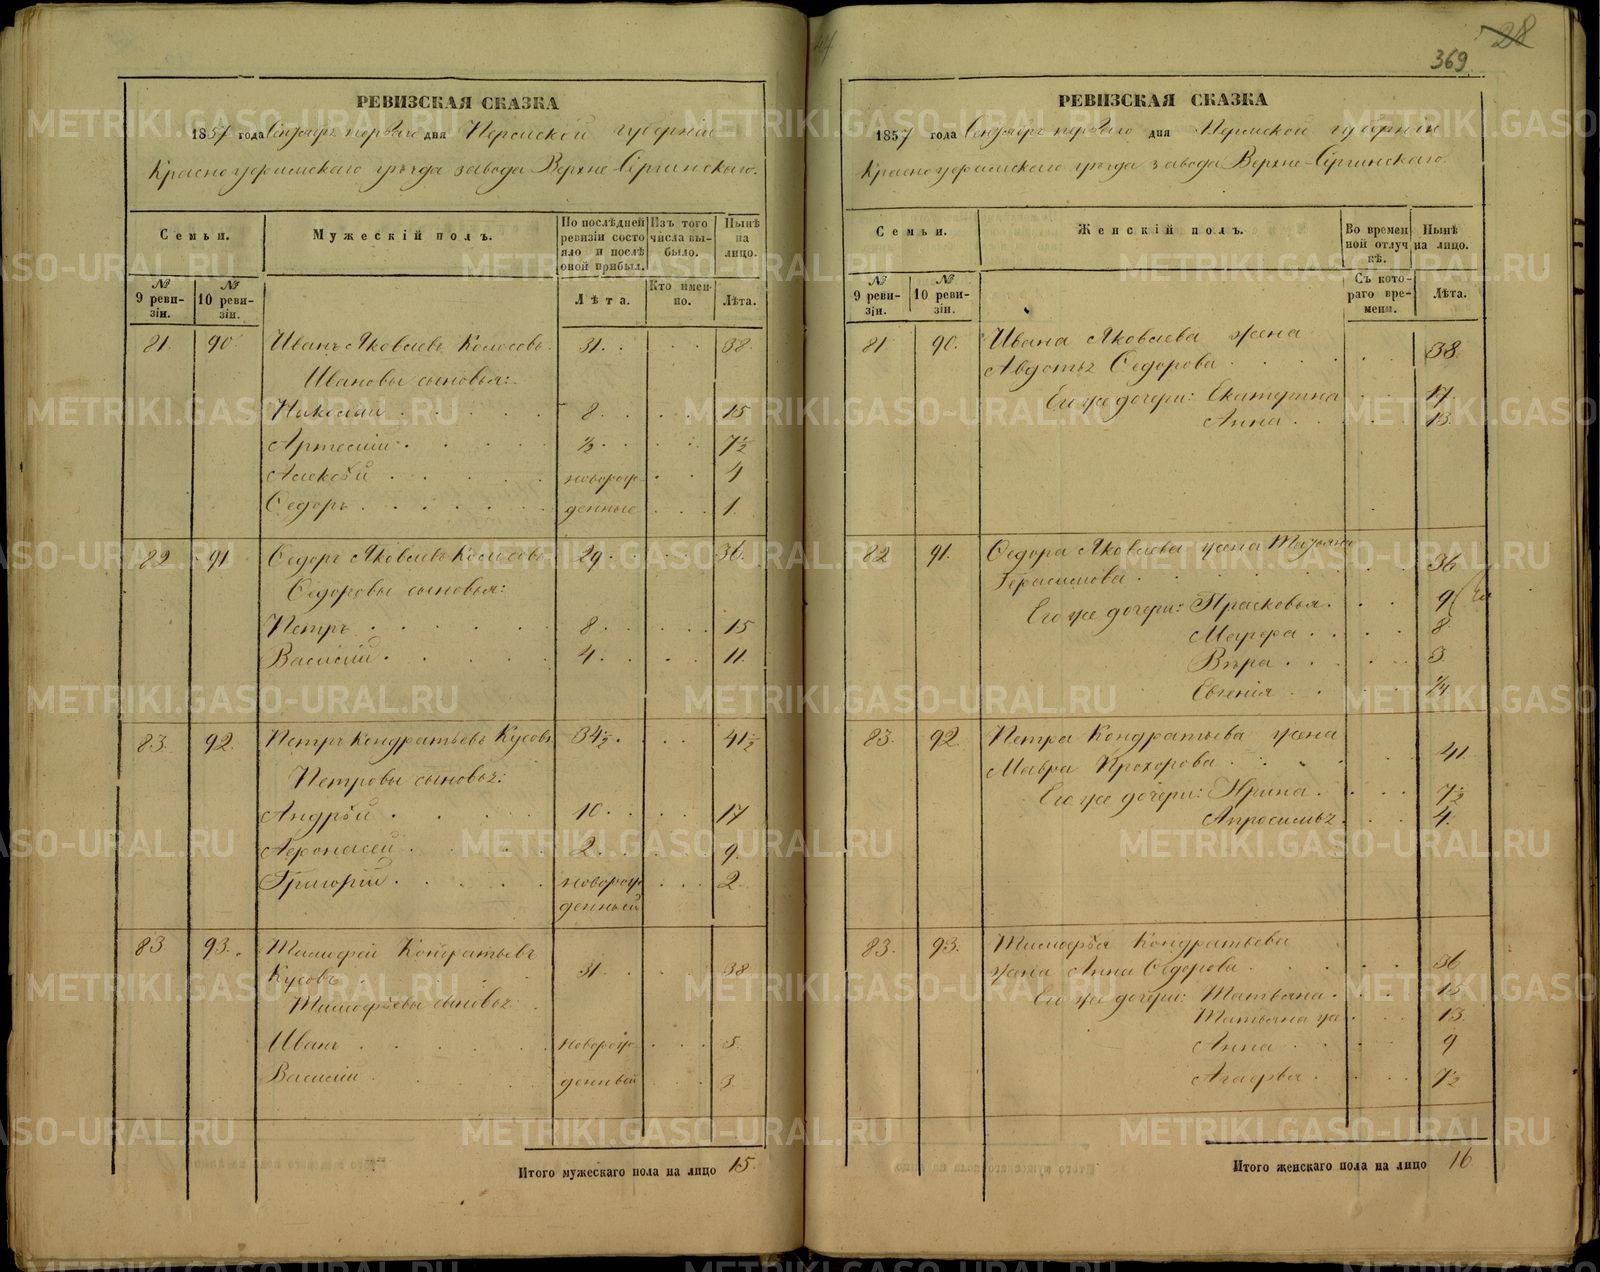 28
369
РЕВИЗСКАЯ СКАЗКА
1857 года Сентября перваго дня Пермской губернии
Красноуфимскаго уѣзда завода Верхне-Сергинскаго.
Семьи.
Мужескій полъ.
По послѣдней ревизіи состояло и послѣ оной прибыл.
Изъ того числа выбыло.
Нынѣ на лицо.
№ 9 ревизіи.
№ 10 ревизіи.
Лѣта.
Кто именно.
Лѣта.
81. 90. Иванъ Яковлевъ Колосовъ 31. 38
Ивановы сыновья:
Николай 8. 15
Артемій ½. 7½
Алексѣй новорож- 4
Ѳедоръ денные 1.
82 91 Ѳедоръ Яковлевъ Колосовъ 29. 36.
Ѳедоровы сыновья:
Петръ 8. 15
Василій 4. 11.
83. 92. Петръ Кондратьевъ Кусовъ 34½. 41½
Петровы сыновья:
Андрѣй 10. 17
Афонасей 2. 9.
Григорій новорож- 2.
денный
83 93. Тимофей Кондратьевъ
Кусовъ 31. 38
Тимофѣевы сыновья:
Иванъ новорож- 5.
Василій денный 3.
Итого мужескаго пола на лицо 15.
РЕВИЗСКАЯ СКАЗКА
1857 года Сентября перваго дня Пермской губернии
Красноуфимскаго уѣзда завода Верхне-Сергинскаго.
Семьи.
Женскій полъ.
Во временной отлучкѣ.
Нынѣ на лицо.
№ 9 ревизіи.
№ 10 ревизіи.
Съ котораго времени.
Лѣта.
81 90. Ивана Яковлева жена
Авдотья Ѳедорова 38.
Его же дочери: Екатерина 17.
Анна 13.
82 91. Ѳедора Яковлева жена Татьяна
Герасимова 36
Его же дочери: Прасковья 9
Марфа 8
Вѣра 3.
Евгенія ¼
83. 92 Петра Кондратьева жена
Мавра Прохорова 41.
Его же дочери: Ирина 7½
Апросинья 4.
83. 93. Тимофѣя Кондратьева
жена Анна Ѳедорова 36
Его же дочери: Татьяна 15
Татьяна же 13.
Анна 9
Агафья 7½
Итого женскаго пола на лицо 16
METRIKI.GASO-URAL.RU